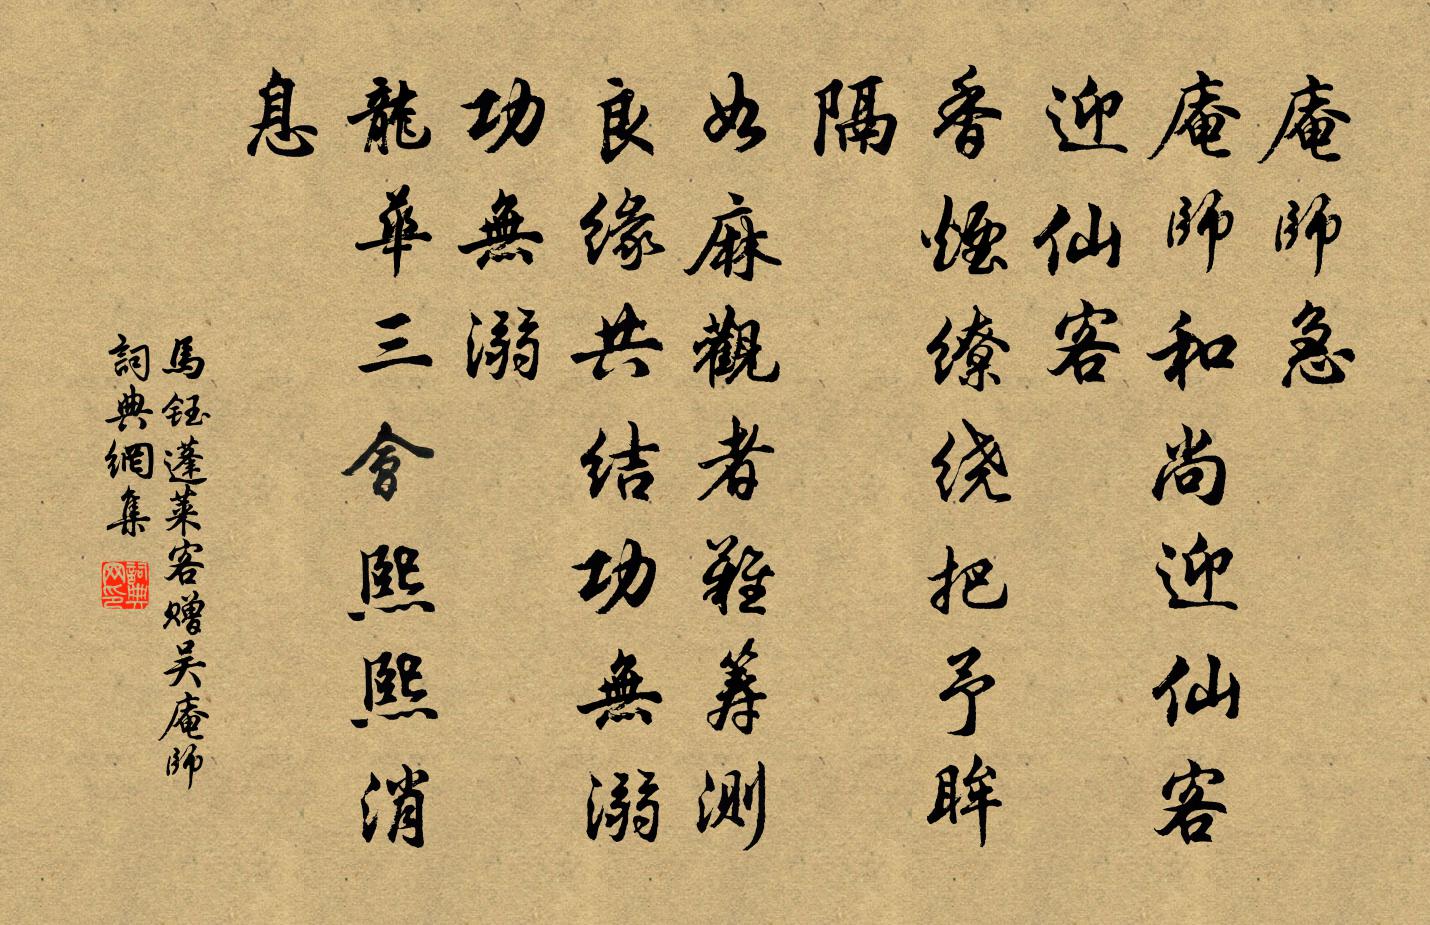 庵師急
庵師和尚迎仙客
迎仙客
香煙繚绕把予眸
隔
如麻觀者難筭測
良緣共结功無溺
功無溺
龍華三會熙熙消
息
馬鈺蓬莱客贈吴庵師
詞典網集
詞典网印